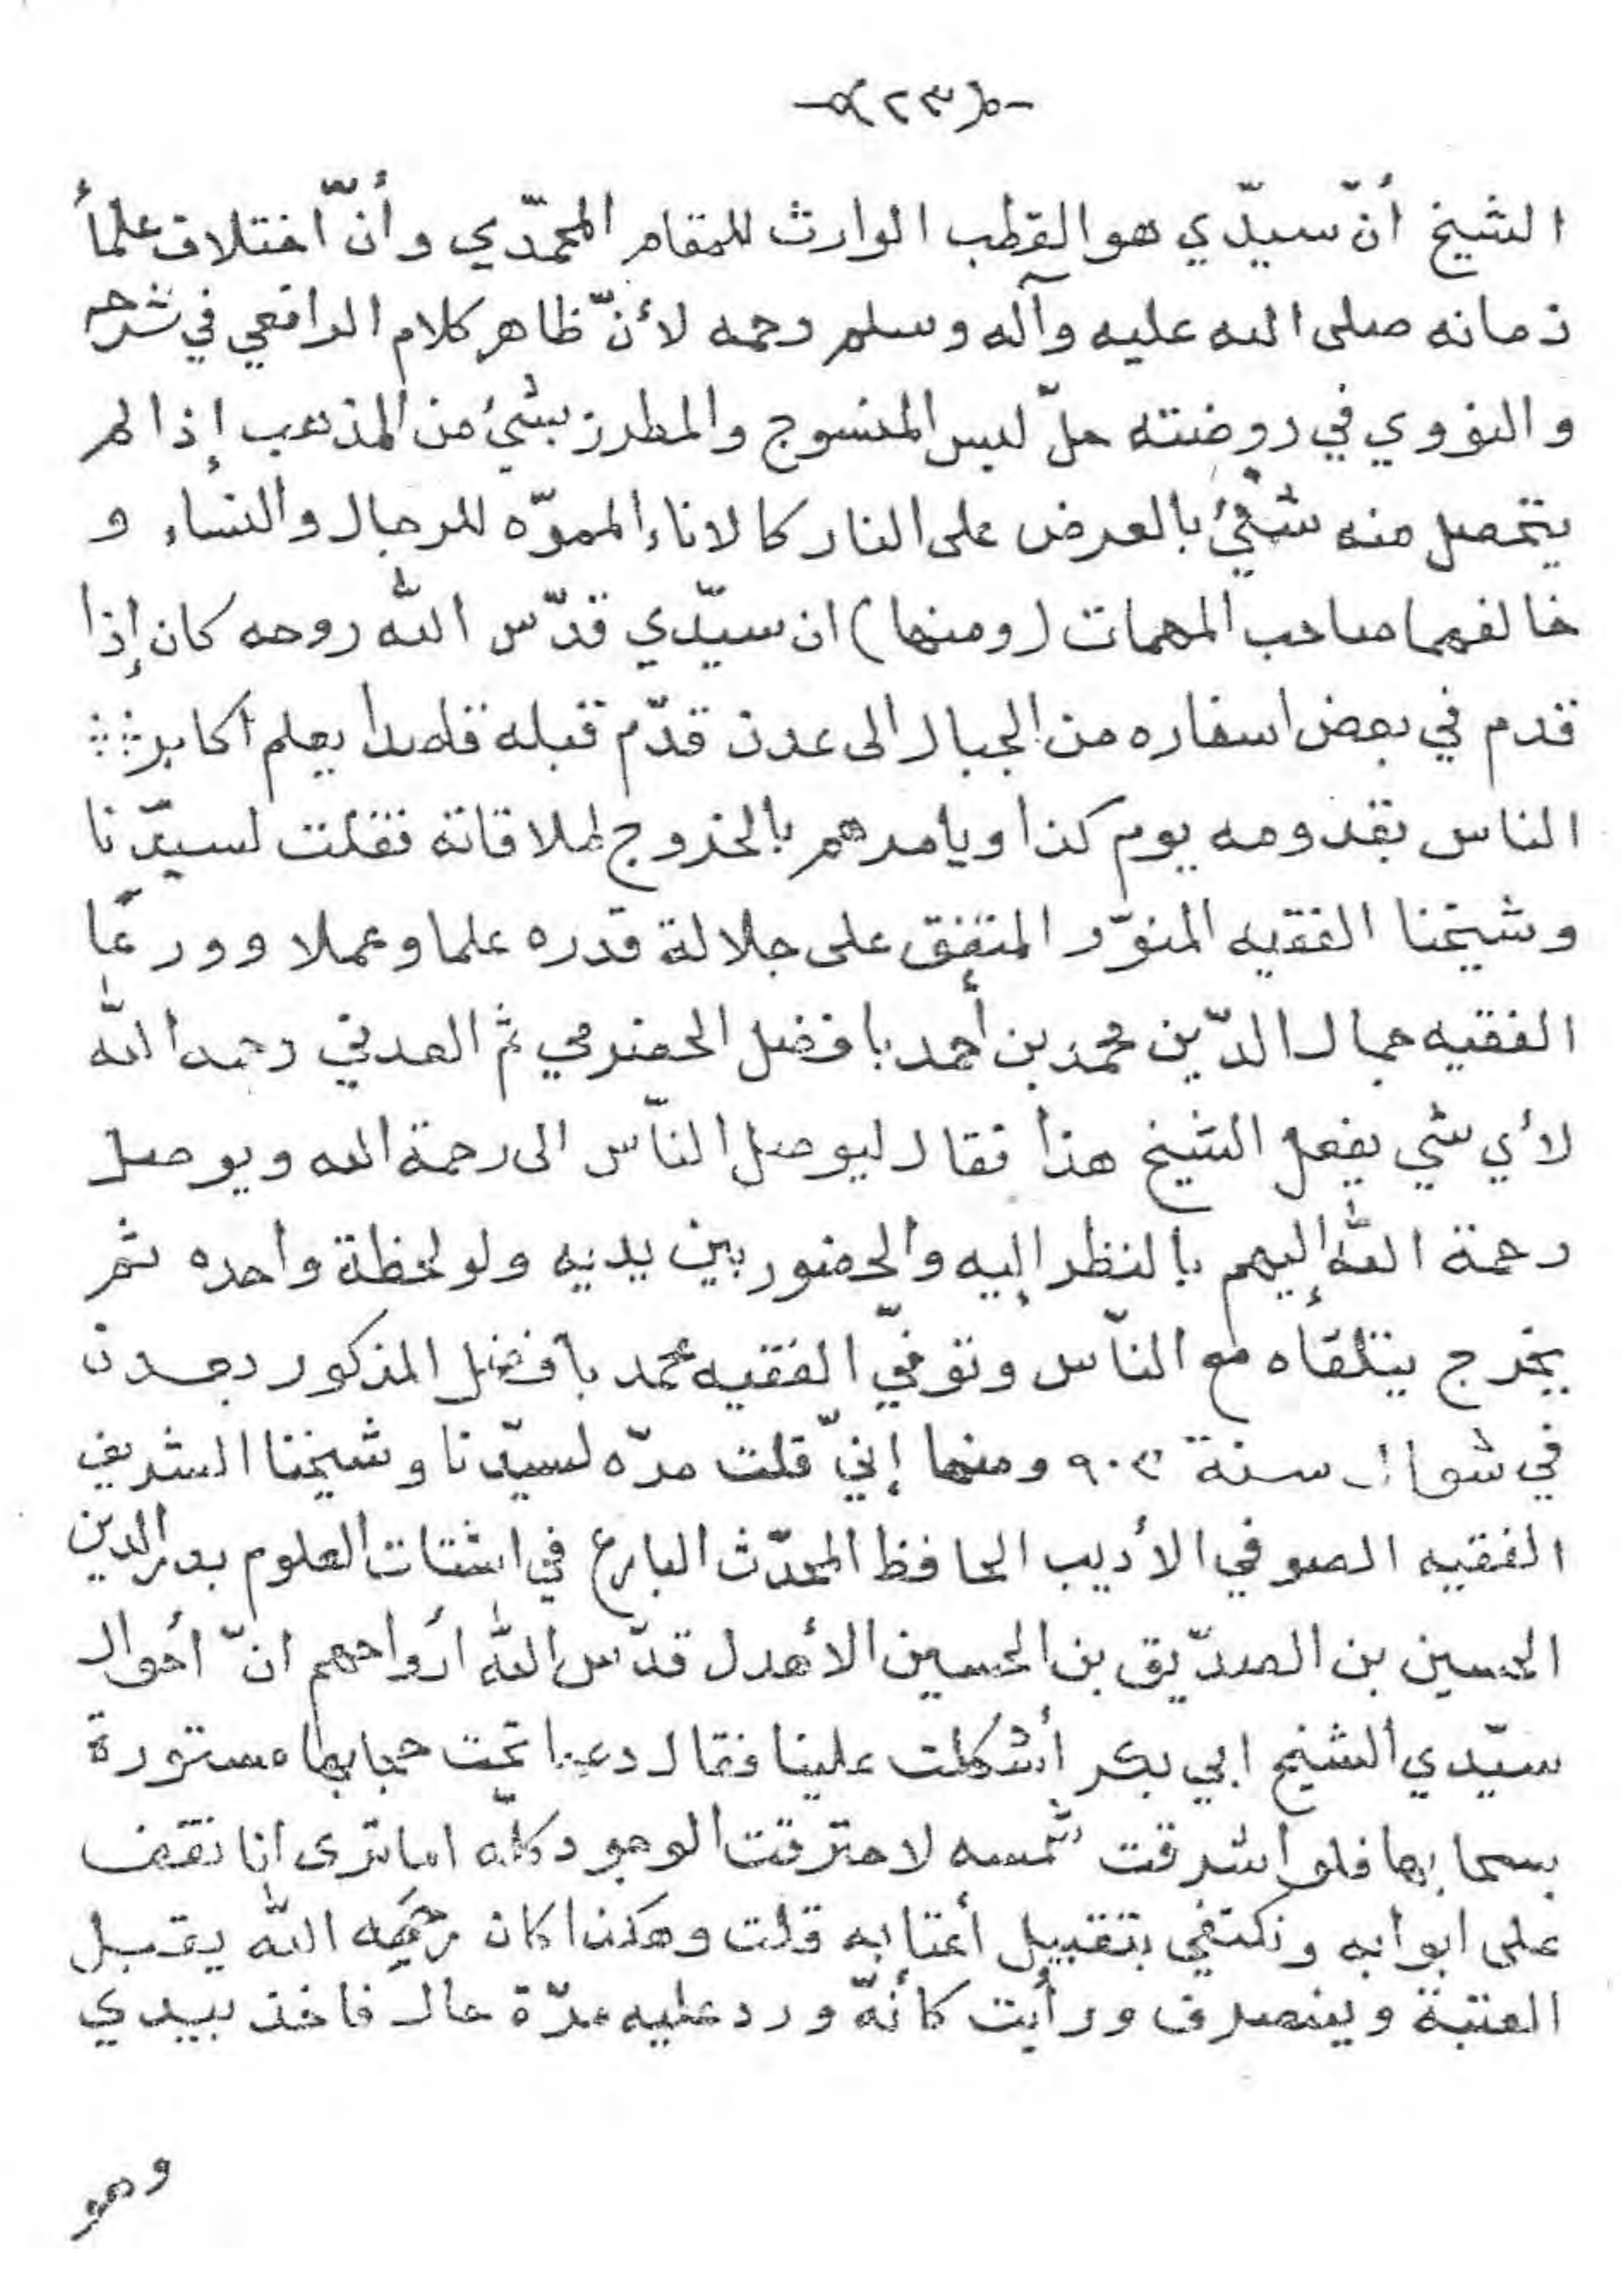 -ه(٢٣)ه-
الشيخ أنّ سيّدي هو القطب الوارث للمقام المحمّدي وأنّ اختلاف علمأ
زمانه صلى الله عليه وآله وسلم رحمه لأنّ ظاهر كلام الرافعي في شرحه
والنووي في روضته حلّ لبس المنسوج والمطرز بشيئ من المذهب إذا لم
يتحصل منه شيئ بالعرض على النار كالاناء المموّه للرجال والنساء و
خالفهما صاحب المهمات (ومنها) ان سيّدي قدّس الله روحه كان إذا
قدم في بعض اسفاره من الجبال الى عدن قدّم قبله قاصدا يعلم أكابر
الناس بقدومه يوم كذا ويامرهم بالخروج لملاقاته فقلت لسيّدنا
وشيخنا الفقيه المنوّر المتفق على جلالة قدره علما وعملا وورعًا
الفقيه جمال الدّين محمد بن أحمد بافضل الحضرمي ثم العدني رحمه الله
لأي شي يفعل الشيخ هذا فقال ليوصل النّاس الى رحمة الله ويوصل
رحمة الله إليهم بالنظر إليه والحضور بين يديه ولو لحظة واحده ثم
يخرج يتلقأه مع النّاس وتوفيّ الفقيه محمد بافضل المذكور بعدن
في شوال سنة ٩٠٣ ومنها إنيّ قلت مرّه لسيّدنا وشيخنا الشريف
الفقيه الصوفي الأديب الحافظ المحدّث البارع في اشتات العلوم بدر الدين
الحسين بن الصدّيق بن الحسين الأهدل قدّس الله أرواحهم انّ أحوال
سيّدي الشيخ ابي بكر أشكلت علينا فقال دعها تحت حجابها مستورة
بسحابها فلو اشرقت شمسه لاحترقت الوجود كلّه اما ترى انا نقف
على ابوابه ونكتفي بتقبيل أعتابه قلت وهكذا كان رحمه الله يقبل
العتبة وينصرف ورأيت كأنّه ورد عليه مرّة حال فاخذ بيدي
وهو